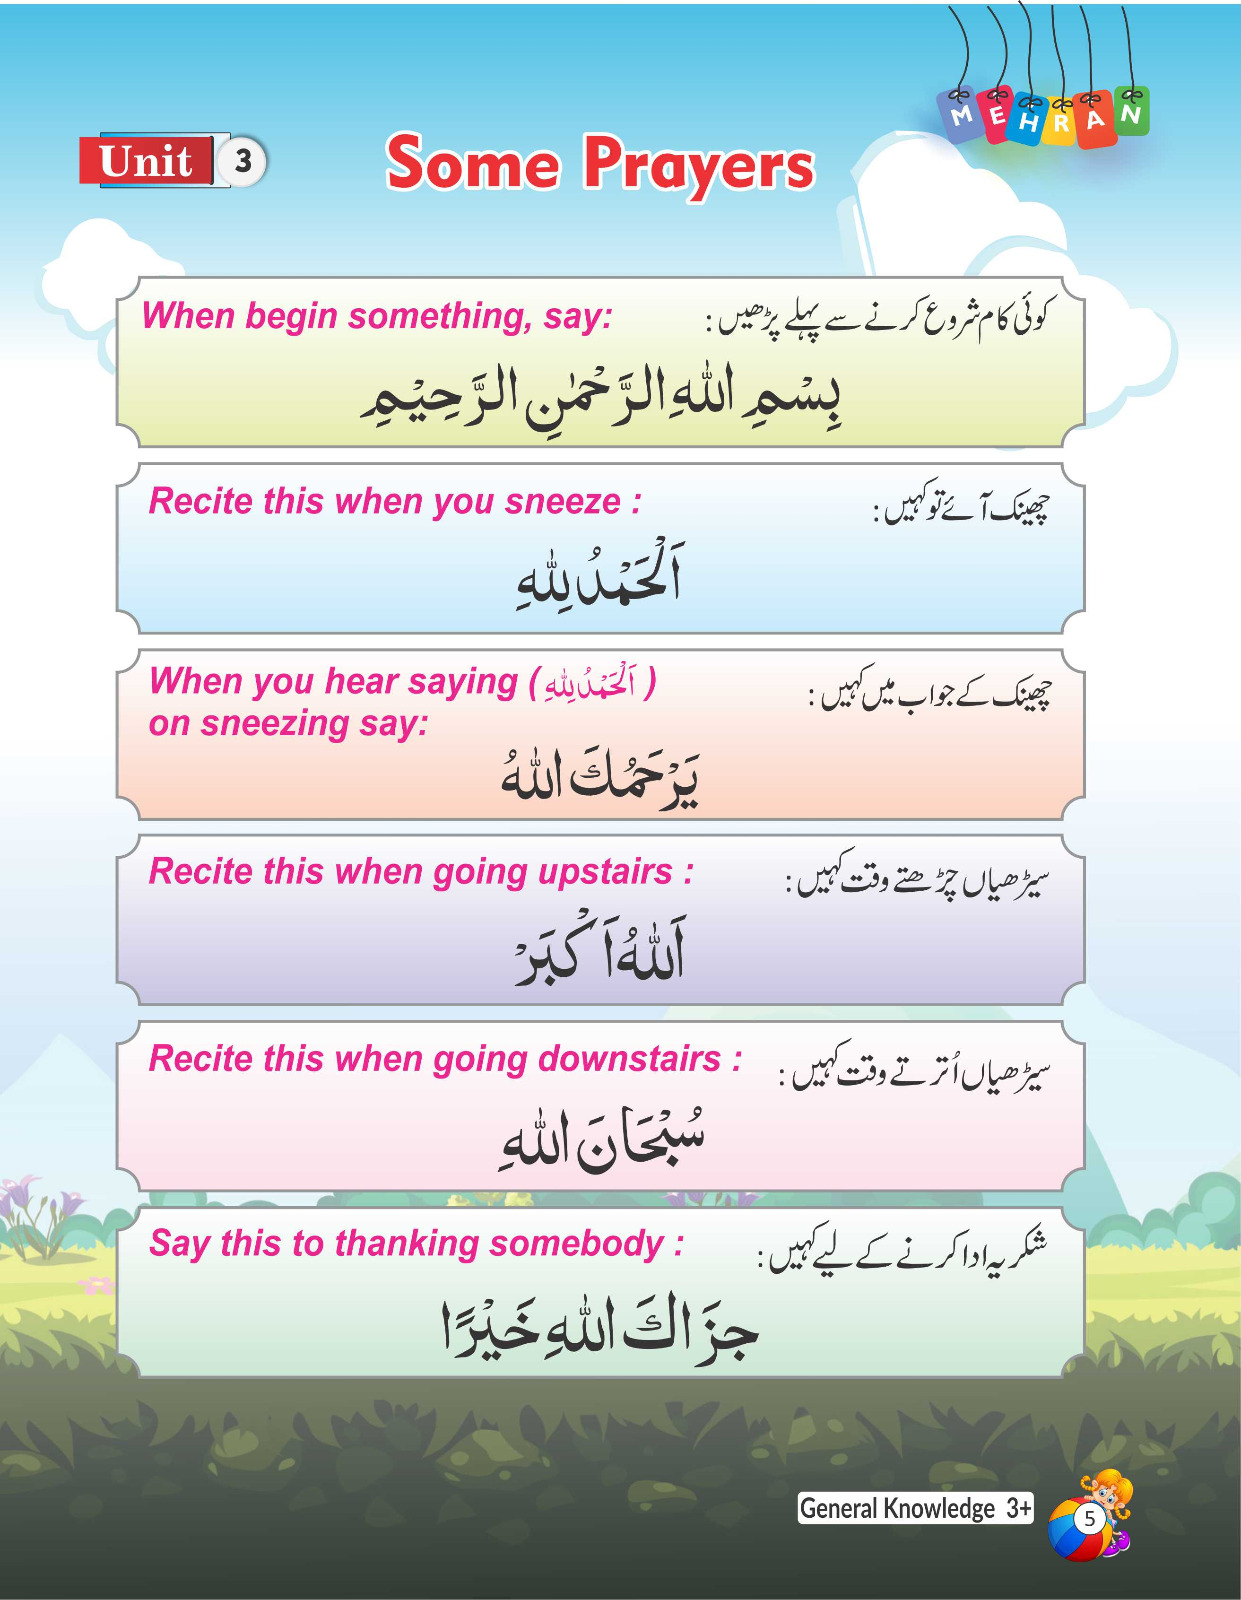 MEHRAN
Unit 3
Some Prayers
When begin something, say: کوئی کام شروع کرنے سے پہلے پڑھیں :
بِسْمِ اللهِ الرَّحْمٰنِ الرَّحِيْمِ
Recite this when you sneeze : چھینک آئے تو کہیں :
اَلْحَمْدُ لِلّٰهِ
When you hear saying ( اَلْحَمْدُ لِلّٰهِ ) چھینک کے جواب میں کہیں :
on sneezing say:
يَرْحَمُكَ اللّٰهُ
Recite this when going upstairs : سیڑھیاں چڑھتے وقت کہیں :
اَللّٰهُ اَكْبَرْ
Recite this when going downstairs : سیڑھیاں اُترتے وقت کہیں :
سُبْحَانَ اللّٰهِ
Say this to thanking somebody : شکریہ ادا کرنے کے لیے کہیں :
جزَاكَ اللّٰهِ خَيْرًا
General Knowledge 3+
5